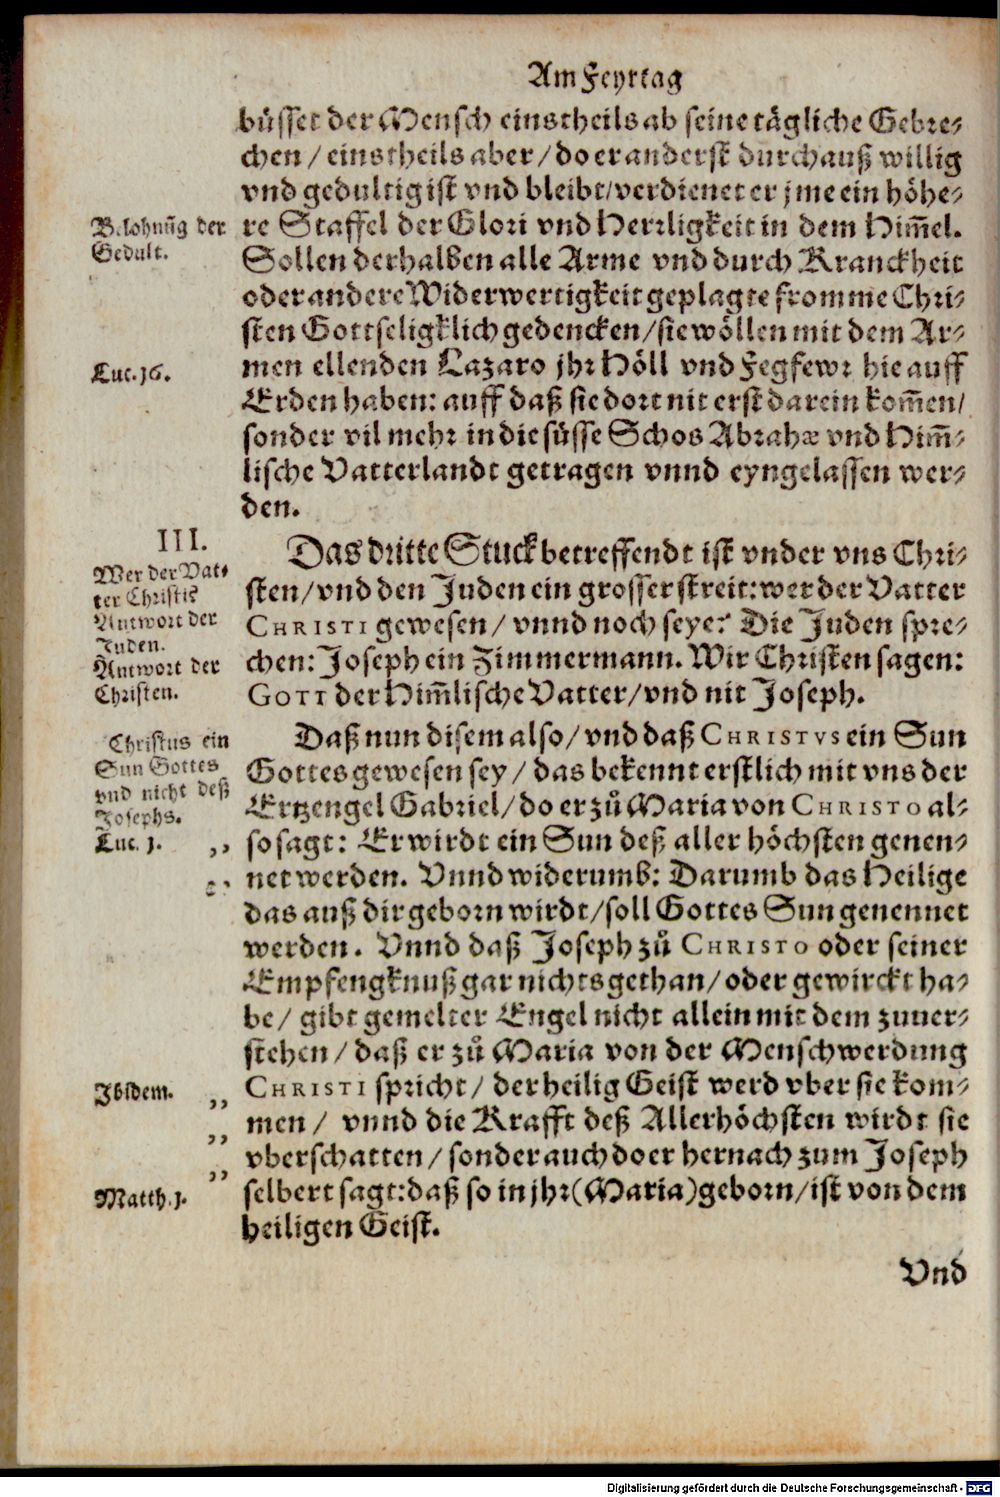 Am Feyrtag
büsset der Mensch einstheils ab seine tägliche Gebre⸗
chen / einstheils aber / do er anderst durchauß willig
vnd gedultig ist vnd bleibt / verdienet er jme ein höhe⸗
Belohnũg der
Gedult.
re Staffel der Glori vnd Herrligkeit in dem Him̃el.
Sollen derhalben alle Arme vnd durch Kranckheit
oder andere Widerwertigkeit geplagte fromme Chri⸗
sten Gottseligklich gedencken / sie wöllen mit dem Ar⸗
Luc. 16.
men ellenden Lazaro jhr Höll vnd Fegfewr hie auff
Erden haben: auff daß sie dort nit erst darein kom̃en /
sonder vil mehr in die süsse Schos Abrahæ vnd Him̃⸗
lische Vatterlandt getragen vnnd eyngelassen wer⸗
den.
III.
Wer der Vat⸗
ter Christi?
Antwort der
Juden.
Antwort der
Christen.
Das dritte Stuck betreffendt ist vnder vns Chri⸗
sten / vnd den Juden ein grosser streit: wer der Vatter
CHRISTI gewesen / vnnd noch seye? Die Juden spre⸗
chen: Joseph ein Zimmermann. Wir Christen sagen:
GOTT der Him̃lische Vatter / vnd nit Joseph.
Christus ein
Sun Gottes
vnd nicht deß
Josephs.
Luc. 1.
Daß nun disem also / vnd daß CHRISTVS ein Sun
Gottes gewesen sey / das bekennt erstlich mit vns der
Ertzengel Gabriel / do er zů Maria von CHRISTO al⸗
so sagt: Er wirdt ein Sun deß aller höchsten genen⸗
net werden. Vnnd widerumb: Darumb das Heilige
das auß dir geborn wirdt / soll Gottes Sun genennet
werden. Vnnd daß Joseph zů CHRISTO oder seiner
Empfengknuß gar nichts gethan / oder gewirckt ha⸗
be / gibt gemelter Engel nicht allein mit dem zuuer⸗
stehen / daß er zů Maria von der Menschwerdung
Ibidem.
CHRISTI spricht / der heilig Geist werd vber sie kom⸗
men / vnnd die Krafft deß Allerhöchsten wirdt sie
vberschatten / sonder auch do er hernach zum Joseph
Matth. 1.
selbert sagt: daß so in jhr (Maria) geborn / ist von dem
heiligen Geist.
Vnd
Digitalisierung gefördert durch die Deutsche Forschungsgemeinschaft - DFG